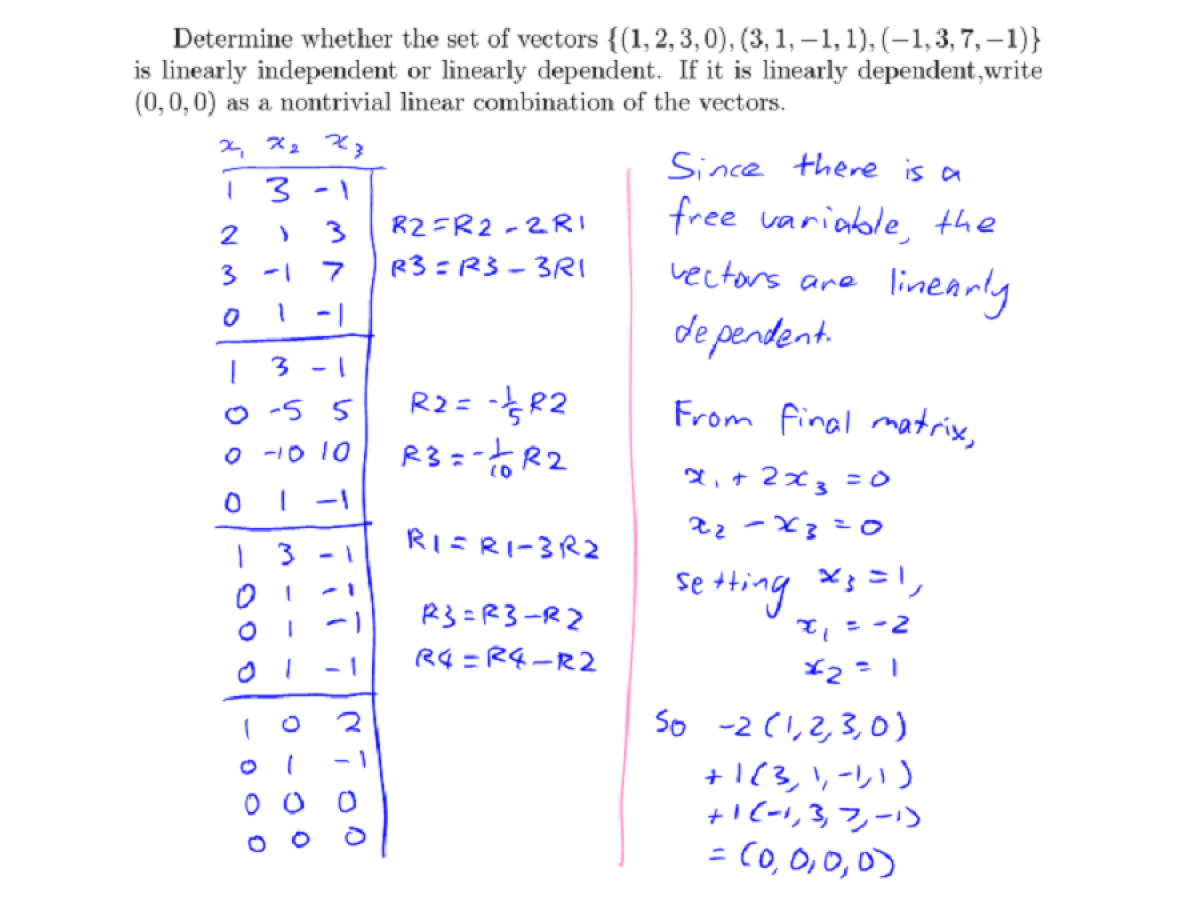 Determine whether the set of vectors {(1, 2, 3, 0), (3, 1, −1, 1), (−1, 3, 7, −1)}
is linearly independent or linearly dependent. If it is linearly dependent,write
(0, 0, 0) as a nontrivial linear combination of the vectors.
x₁ x₂ x₃
1 3 -1
2 1 3 R2=R2-2R1
3 -1 7 R3=R3-3R1
0 1 -1
1 3 -1
0 -5 5 R2=-1/5 R2
0 -10 10 R3=-1/10 R2
0 1 -1
1 3 -1 R1=R1-3R2
0 1 -1
0 1 -1 R3=R3-R2
0 1 -1 R4=R4-R2
1 0 2
0 1 -1
0 0 0
0 0 0
Since there is a
free variable, the
vectors are linearly
dependent.
From final matrix,
x₁ + 2x₃ = 0
x₂ - x₃ = 0
setting x₃ = 1,
x₁ = -2
x₂ = 1
So -2(1,2,3,0)
+1(3,1,-1,1)
+1(-1,3,7,-1)
= (0,0,0,0)